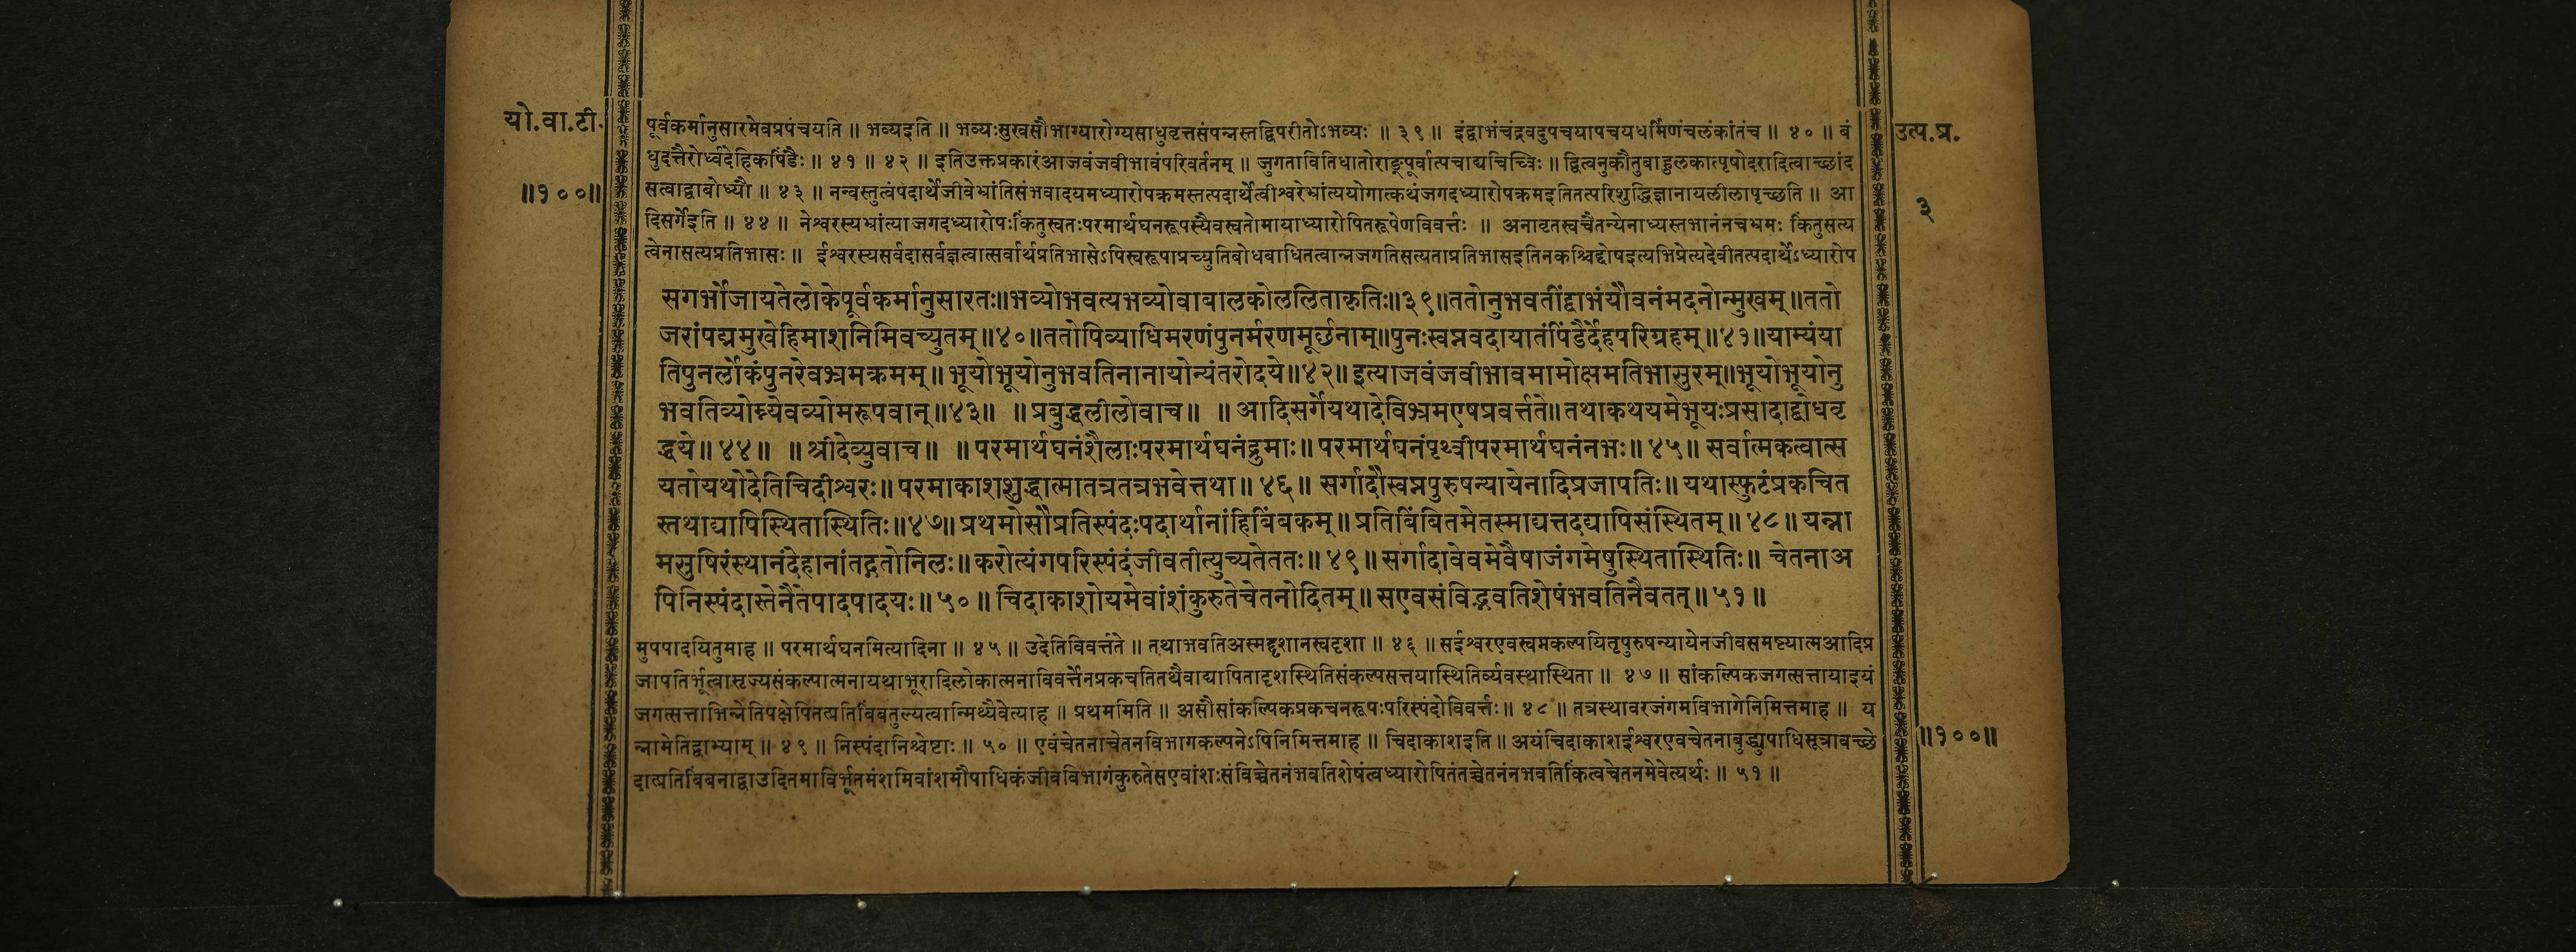 यो.वा.टी.
॥१००॥
पूर्वकर्मानुसारमेवप्रपंचयति ॥ भव्यइति ॥ भव्यःसुखसौभाग्यारोग्यसाधुवृत्तसंपन्नस्तद्विपरीतोऽभव्यः ॥ ३९ ॥ इंद्वाभंचंद्रवदुपचयापचयधर्मिणंचलंकांतंच ॥ ४० ॥ बं
धुदत्तैरौर्ध्वदेहिकपिंडैः ॥ ४१ ॥ ४२ ॥ इतिउक्तप्रकारंआजवंजवीभावंपरिवर्तनम् ॥ जुगतावितिधातोराङ्पूर्वात्पचाद्यचिच्विः ॥ द्वित्वनुकौतुबाहुलकात्पृषोदरादित्वाच्छांद
सत्वाद्वाबोध्यौ ॥ ४३ ॥ नन्वस्तुत्वंपदार्थेजीवेभ्रांतिसंभवादयमध्यारोपक्रमस्तत्पदार्थेत्वीश्वरेभ्रांत्ययोगात्कथंजगदध्यारोपक्रमइतितत्परिशुद्धिज्ञानायलीलापृच्छति ॥ आ
दिसर्गेइति ॥ ४४ ॥ नेश्वरस्यभ्रांत्याजगदध्यारोपःकिंतुस्वतःपरमार्थघनरूपस्यैवस्वतोमायाध्यारोपितरूपेणविवर्त्तः ॥ अनावृतस्वचैतन्येनाध्यस्तभानंनचभ्रमः किंतुसत्य
त्वेनासत्यप्रतिभासः ॥ ईश्वरस्यसर्वदासर्वज्ञत्वात्सर्वार्थप्रतिभासेऽपिस्वरूपाप्रच्युतिबोधबाधितत्वान्नजगतिसत्यताप्रतिभासइतिनकश्चिद्दोषइत्यभिप्रेत्यदेवीतत्पदार्थेऽध्यारोप
सगर्भोजायतेलोकेपूर्वकर्मानुसारतः॥भव्योभवत्यभव्योवाबालकोललिताकृतिः॥३९॥ततोनुभवतींद्वाभंयौवनंमदनोन्मुखम्॥ततो
जरांपद्ममुखेहिमाशनिमिवच्युतम्॥४०॥ततोपिव्याधिमरणंपुनर्मरणमूर्छनाम्॥पुनःस्वप्नवदायातंपिंडैर्देहपरिग्रहम्॥४१॥याम्यंया
तिपुनर्लोकंपुनरेवभ्रमक्रमम्॥भूयोभूयोनुभवतिनानायोन्यंतरोदये॥४२॥इत्याजवंजवीभावमामोक्षमतिभासुरम्॥भूयोभूयोनु
भवतिव्योम्न्येवव्योमरूपवान्॥४३॥ ॥प्रबुद्धलीलोवाच॥ ॥आदिसर्गेयथादेविभ्रमएषप्रवर्त्तते॥तथाकथयमेभूयःप्रसादाद्बोधवृ
द्धये॥४४॥ ॥श्रीदेव्युवाच॥ ॥परमार्थघनंशैलाःपरमार्थघनंद्रुमाः॥परमार्थघनंपृथ्वीपरमार्थघनंनभः॥४५॥सर्वात्मकत्वात्स
यतोयथोदेतिचिदीश्वरः॥परमाकाशशुद्धात्मातत्रतत्रभवेत्तथा॥४६॥ सर्गादौस्वप्नपुरुषन्यायेनादिप्रजापतिः॥यथास्फुटंप्रकचित
स्तथाद्यापिस्थितास्थितिः॥४७॥प्रथमोसौप्रतिस्पंदःपदार्थानांहिबिंबकम्॥प्रतिबिंबितमेतस्माद्यत्तदद्यापिसंस्थितम्॥४८॥यन्ना
मसुषिरंस्थानंदेहानांतद्गतोनिलः॥करोत्यंगपरिस्पंदंजीवतीत्युच्यतेततः॥४९॥सर्गादावेवमेवैषाजंगमेषुस्थितास्थितिः॥ चेतनाअ
पिनिस्पंदास्तेनैतेपादपादयः॥५०॥चिदाकाशोयमेवांशंकुरुतेचेतनोदितम्॥सएवसंविद्भवतिशेषंभवतिनैवतत्॥५१॥
मुपपादयितुमाह ॥ परमार्थघनमित्यादिना ॥ ४५ ॥ उदेतिविवर्त्तते ॥ तथाभवतिअस्मद्दृशानस्वदृशा ॥ ४६ ॥ सईश्वरएवस्वप्नकल्पयितृपुरुषन्यायेनजीवसमष्ट्यात्मआदिप्र
जापतिर्भूत्वासृज्यसंकल्पात्मनायथाभूरादिलोकात्मनाविवर्त्तेनप्रकचतितथैवाद्यापितादृशस्थितिसंकल्पसत्तयास्थितिर्व्यवस्थास्थिता ॥ ४७ ॥ सांकल्पिकजगत्सत्तायाइयं
जगत्सत्ताभिन्नेतिपक्षेपितत्प्रतिबिंबतुल्यत्वान्मिथ्यैवेत्याह ॥ प्रथममिति ॥ असौसांकल्पिकप्रकचनरूपःपरिस्पंदोविवर्त्तः॥ ४८ ॥ तत्रस्थावरजंगमविभागेनिमित्तमाह ॥ य
न्नामेतिद्वाभ्याम् ॥ ४९ ॥ निस्पंदानिश्चेष्टाः ॥ ५० ॥ एवंचेतनाचेतनविभागकल्पनेऽपिनिमित्तमाह ॥ चिदाकाशइति॥ अयंचिदाकाशईश्वरएवचेतनाबुद्ध्युपाधिसूत्रावच्छे
दात्प्रतिबिंबनाद्वाउदितमाविर्भूतमंशमिवांशमौपाधिकंजीवविभागंकुरुतेसएवांशःसंविच्चेतनंभवतिशेषंत्वध्यारोपितंतच्चेतनंनभवतिकिंत्वचेतनमेवेत्यर्थः ॥ ५१ ॥
उत्प.प्र.
३
॥१००॥